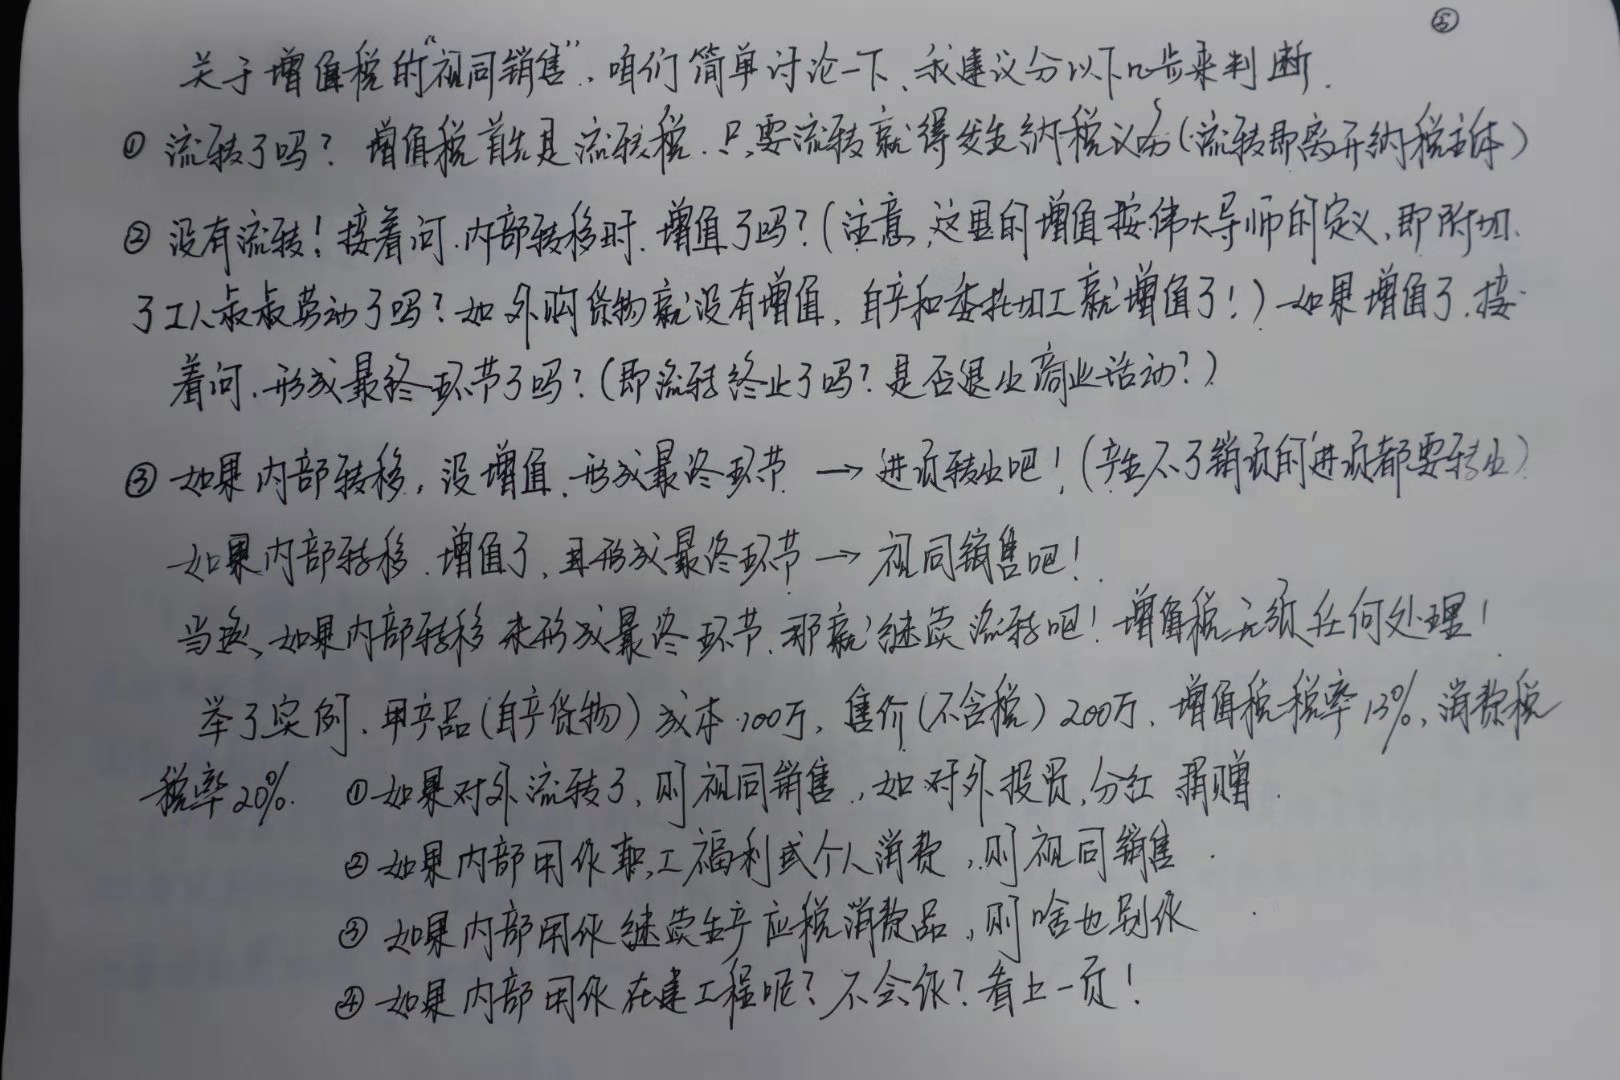 ⑤
关于增值税的"视同销售"，咱们简单讨论一下、我建议分以下几步来判断．
① 流转了吗？增值税首先是流转税．只要流转就得发生纳税义务（流转即离开纳税主体）
② 没有流转！接着问．内部转移时．增值了吗？（注意，这里的增值按伟大导师的定义，即附加
了工人叔叔劳动了吗？如外购货物就没有增值，自产和委托加工就增值了！）如果增值了．接
着问．形成最终环节了吗？（即流转终止了吗？是否退出商业活动？）
③ 如果内部转移，没增值．形成最终环节 → 进项转出吧！（产生不了销项的进项都要转出）
如果内部转移．增值了、且形成最终环节 → 视同销售吧！
当然、如果内部转移未形成最终环节．那就继续流转吧！增值税无须任何处理！
举个实例．甲产品（自产货物）成本100万，售价（不含税）200万．增值税税率13%，消费税
税率20%．①如果对外流转了，则视同销售，如对外投资，分红 捐赠．
②如果内部用作职工福利或个人消费，则视同销售．
③如果内部用作继续生产应税消费品，则啥也别作
④如果内部用作在建工程呢？不会作？看上一页！